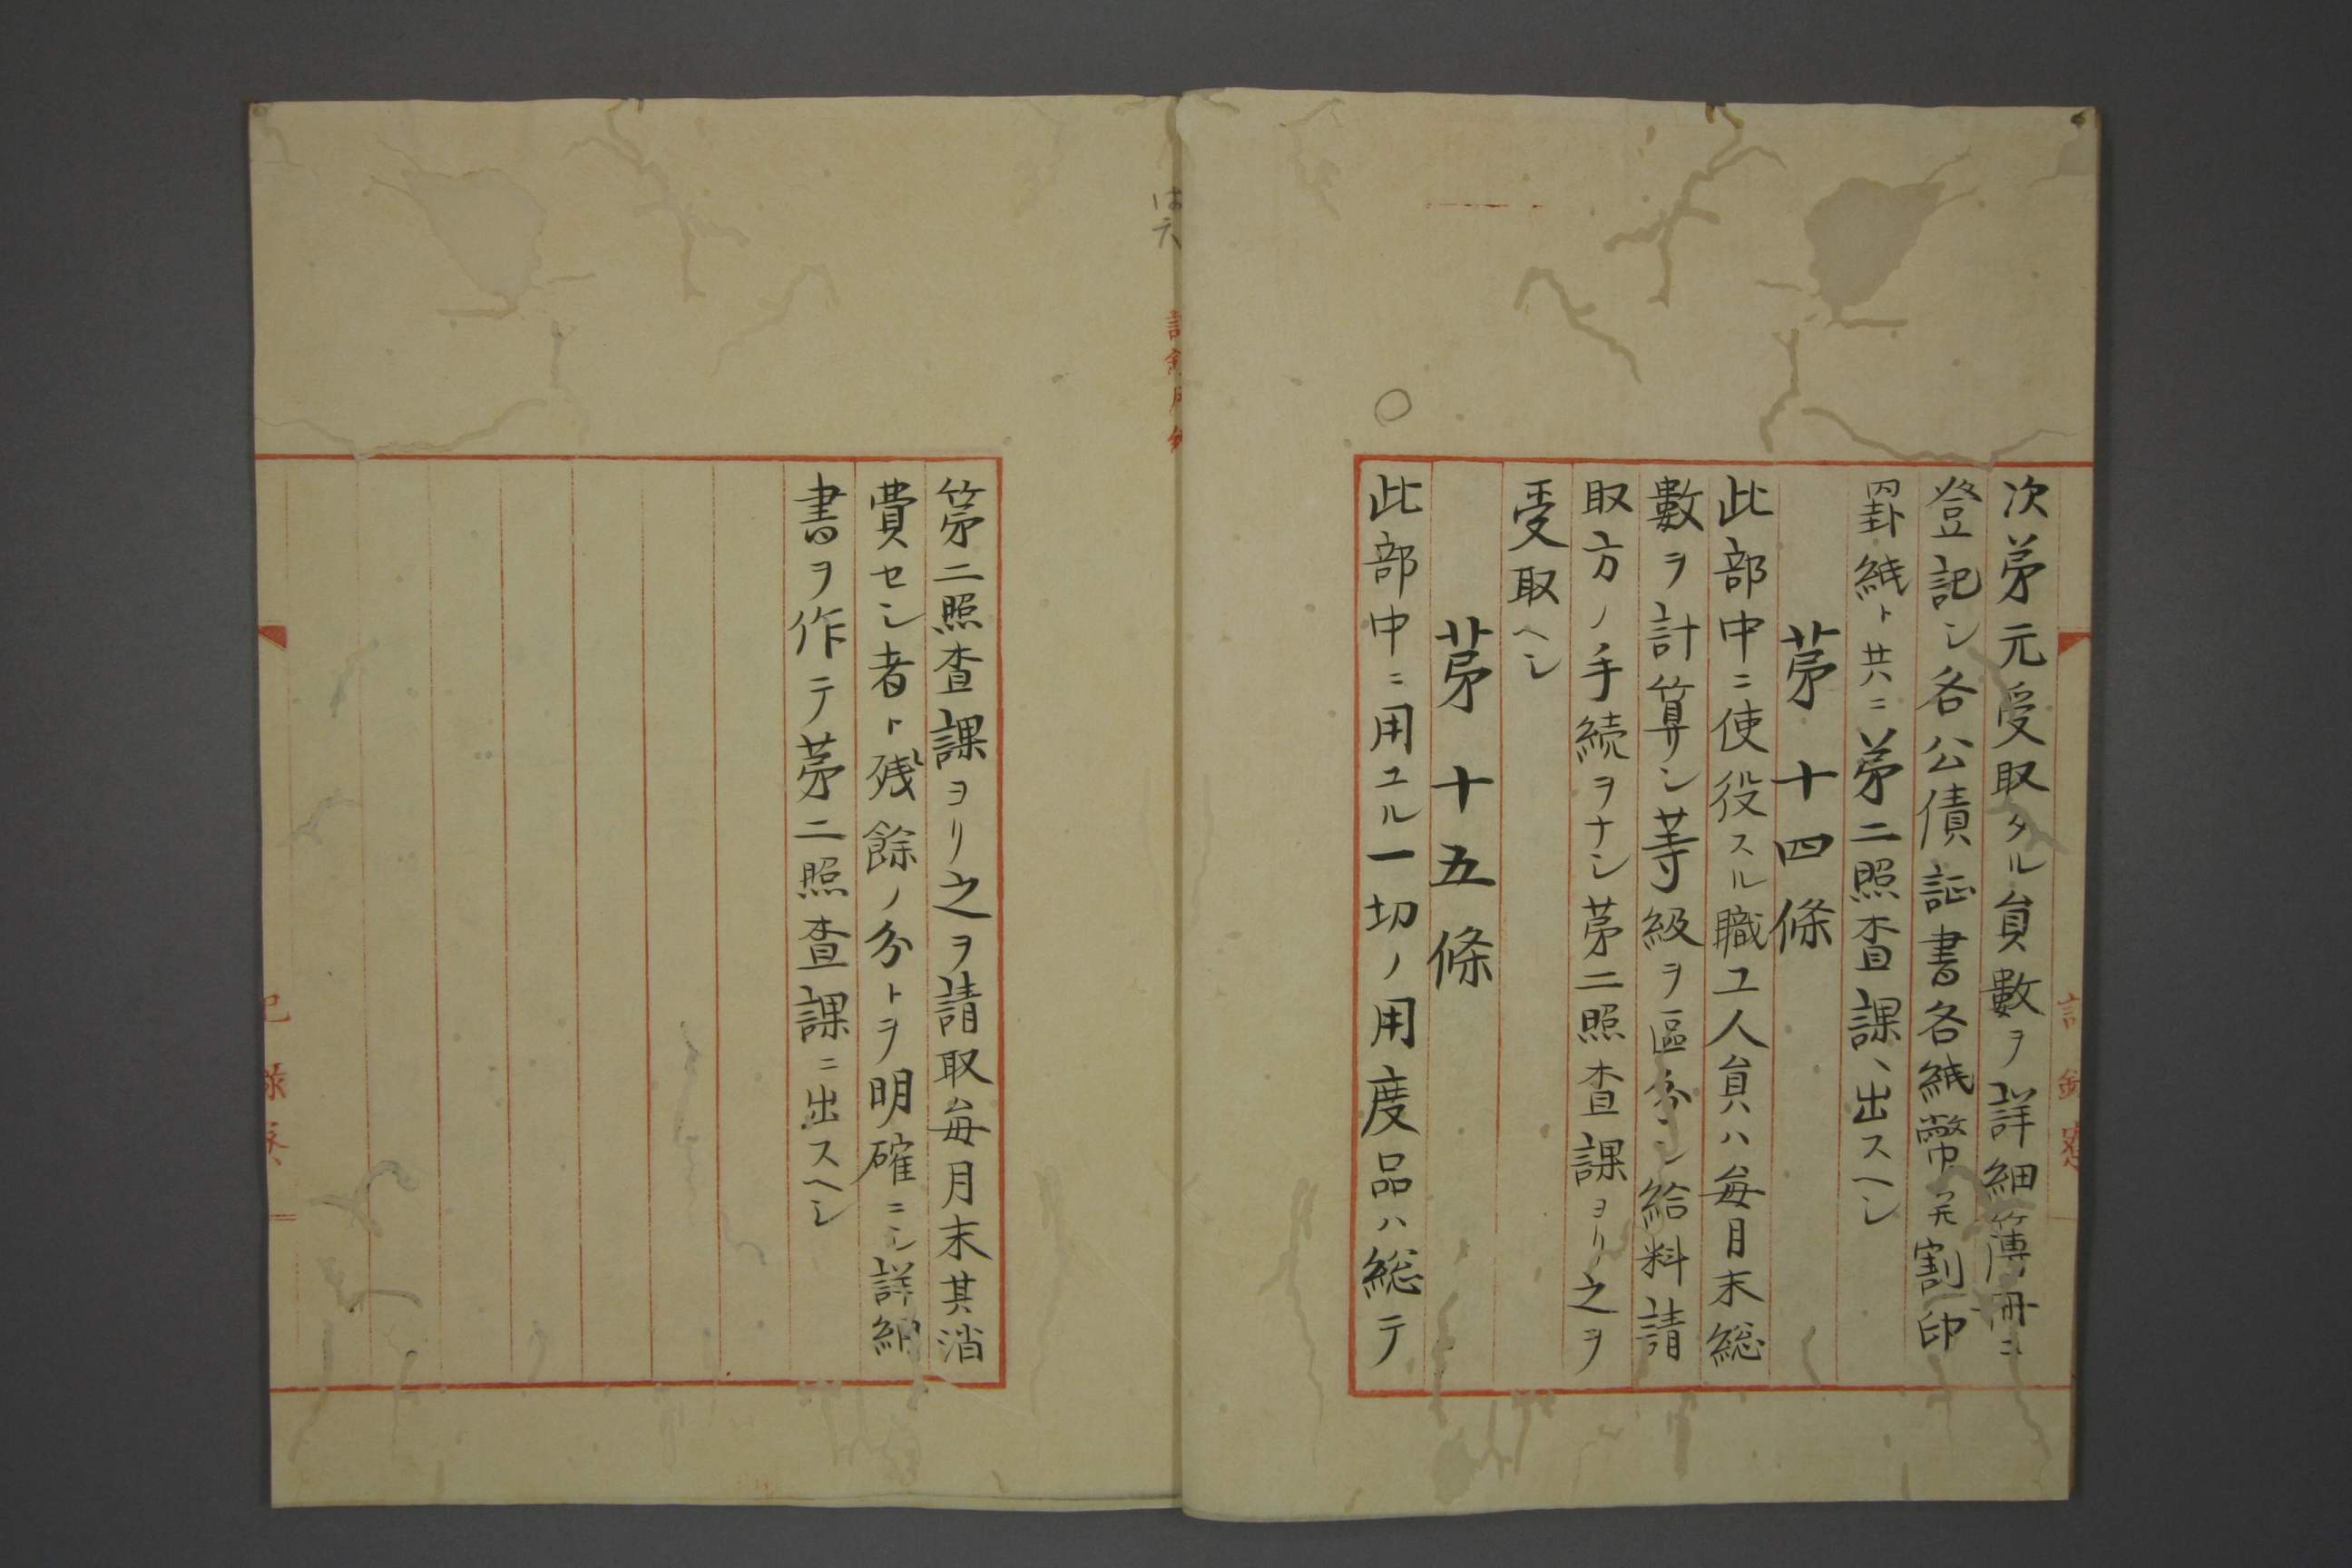 次第元受取タル員數ヲ詳細簿冊ニ
登記シ各公債証書各紙幣幷割印
罫紙ト共ニ第二照査課ヘ出スヘシ
第十四條
此部中ニ使役スル職工人員ハ毎月末総
數ヲ計算シ等級ヲ區分シ給料請
取方ノ手続ヲナシ第二照査課ヨリ之ヲ
受取ヘシ
第十五條
○
此部中ニ用ユル一切ノ用度品ハ総テ
第二照査課ヨリ之ヲ請取毎月末其消
費セシ者ト残餘ノ分トヲ明確ニシ詳細
書ヲ作テ第二照査課ニ出スヘシ